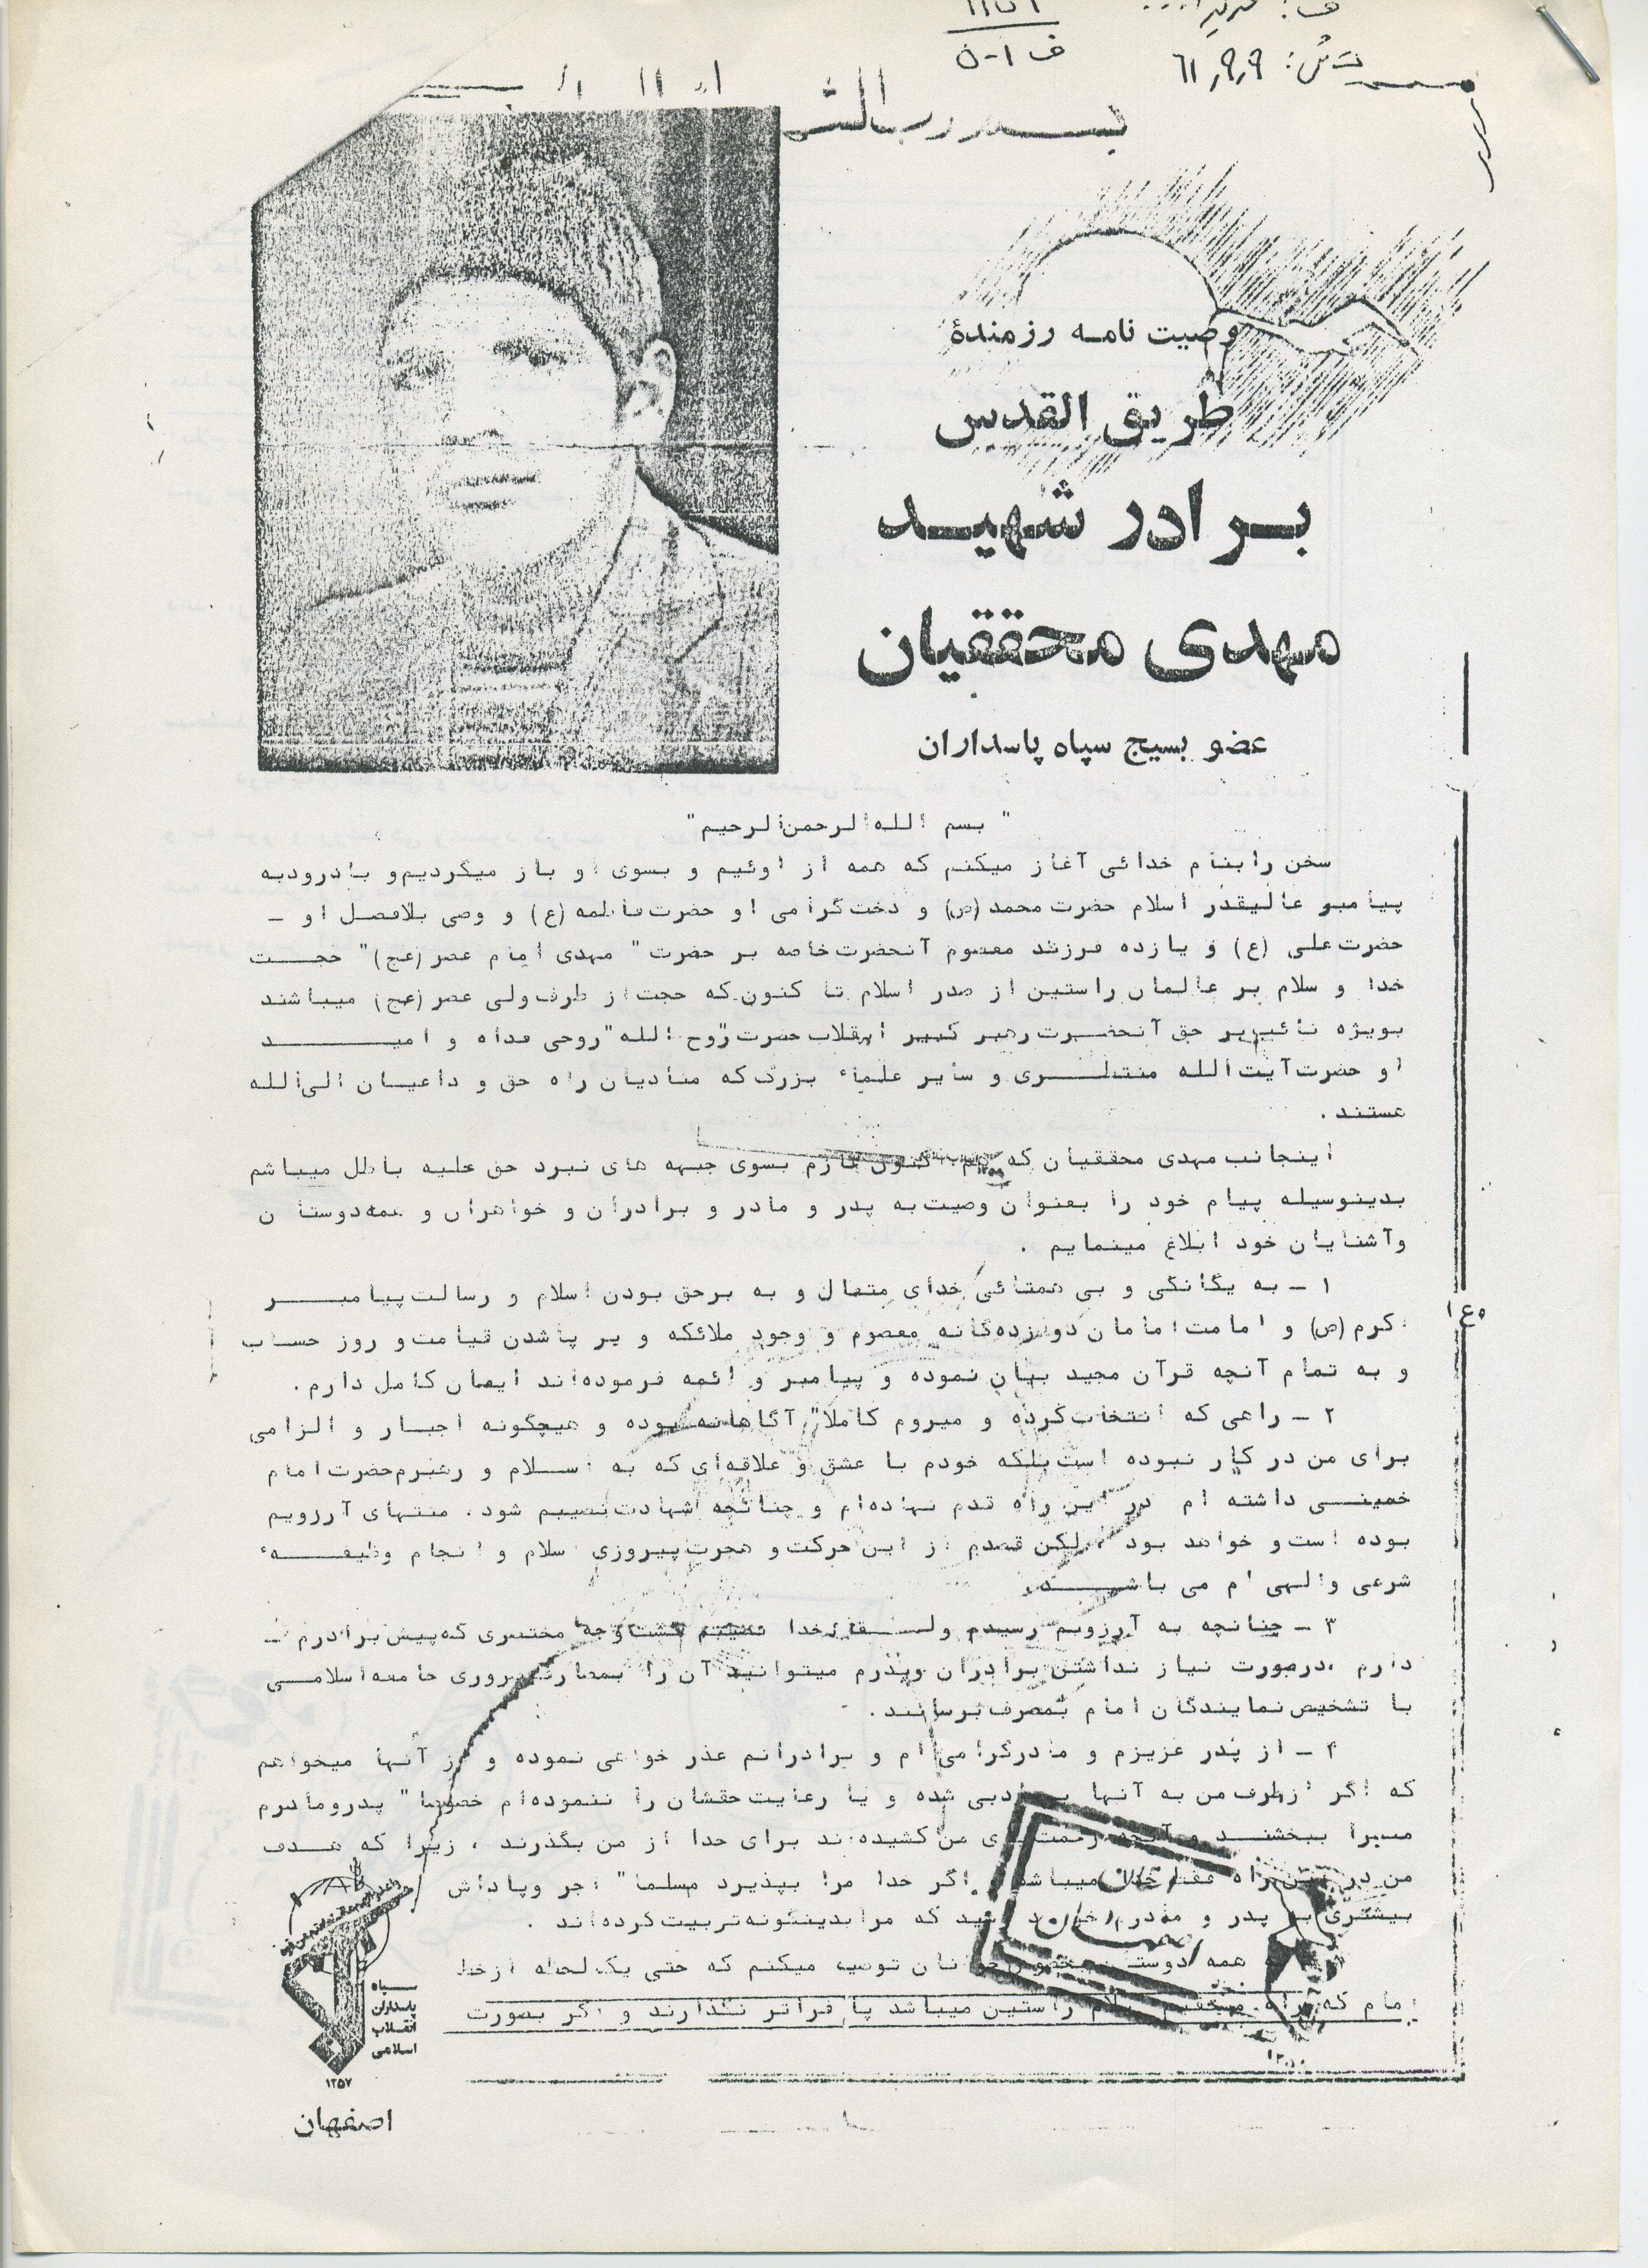 ت ش: ۶۱٫۹٫۹
ف ۱-۵
وصیت نامه رزمندهٔ
طریق القدس
برادر شهید
مهدی محققیان
عضو بسیج سپاه پاسداران
" بسم الله الرحمن الرحیم "
سخن را بنام خدائی آغاز میکنم که همه از اوئیم و بسوی او باز میگردیم و با درود به
پیامبر عالیقدر اسلام حضرت محمد (ص) و دخت گرامی او حضرت فاطمه (ع) و وصی بلافصل او –
حضرت علی (ع) و یازده فرزند معصوم آنحضرت خاصه بر حضرت " مهدی امام عصر (عج) " حجت
خدا و سلام بر عالمان راستین از صدر اسلام تا کنون که حجت از طرف ولی عصر (عج) میباشند
بویژه نائب بر حق آنحضرت رهبر کبیر انقلاب حضرت "روح الله" روحی فداه و امید
او حضرت آیت الله منتظری و سایر علماء بزرگ که منادیان راه حق و داعیان الی الله
هستند .
اینجانب مهدی محققیان که هم اکنون عازم بسوی جبهه های نبرد حق علیه باطل میباشم
بدینوسیله پیام خود را بعنوان وصیت به پدر و مادر و برادران و خواهران و همه دوستان
وآشنایان خود ابلاغ مینمایم .
۱ – به یگانگی و بی همتائی خدای متعال و به برحق بودن اسلام و رسالت پیامبر
اکرم (ص) و امامت امامان دوازده گانه معصوم و وجود ملائکه و بر پا شدن قیامت و روز حساب
و به تمام آنچه قرآن مجید بیان نموده و پیامبر و ائمه فرموده اند ایمان کامل دارم .
۲ – راهی که انتخاب کرده و میروم کاملا" آگاهانه بوده و هیچگونه اجبار و الزامی
برای من در کار نبوده است بلکه خودم با عشق و علاقه ای که به اسلام و رهبرم حضرت امام
خمینی داشته ام در این راه قدم نهاده ام و چنانچه شهادت نصیبم شود . منتهای آرزویم
بوده است و خواهد بود ، لکن قصدم از این حرکت و هجرت پیروزی اسلام و انجام وظیفهٔ
شرعی و الهی ام می باشد .
۳ – چنانچه به آرزویم رسیدم و لقاء خدا نصیبم گشت وجه مختصری که پیش برادرم –
دارم ،درصورت نیاز نداشتن برادران وپدرم میتوانید آن را بمصارف ضروری جامعه اسلامی
با تشخیص نمایندگان امام بمصرف برسانند .
۴ – از پدر عزیزم و مادرگرامی ام و برادرانم عذر خواهی نموده و از آنها میخواهم
که اگر از طرف من به آنها بی ادبی شده و یا رعایت حقشان را ننموده ام خصوصا" پدرومادرم
مرا ببخشند و آنچه زحمت برای من کشیده اند برای خدا از من بگذرند ، زیرا که هدف
من در این راه فقط خدا میباشد اگر خدا مرا بپذیرد مسلما" اجر وپاداش
بیشتری به پدر و مادرم خواهد رسید که مرا بدینگونه تربیت کرده اند .
به همه دوستان جوانان توصیه میکنم که حتی یک لحظه از خط
امام که راه مستقیم اسلام راستین میباشد پا فراتر نگذارند و اگر بصورت
۱۴۰
سپاه
پاسداران
انقلاب
اسلامی
۱۳۵۷
اصفهان